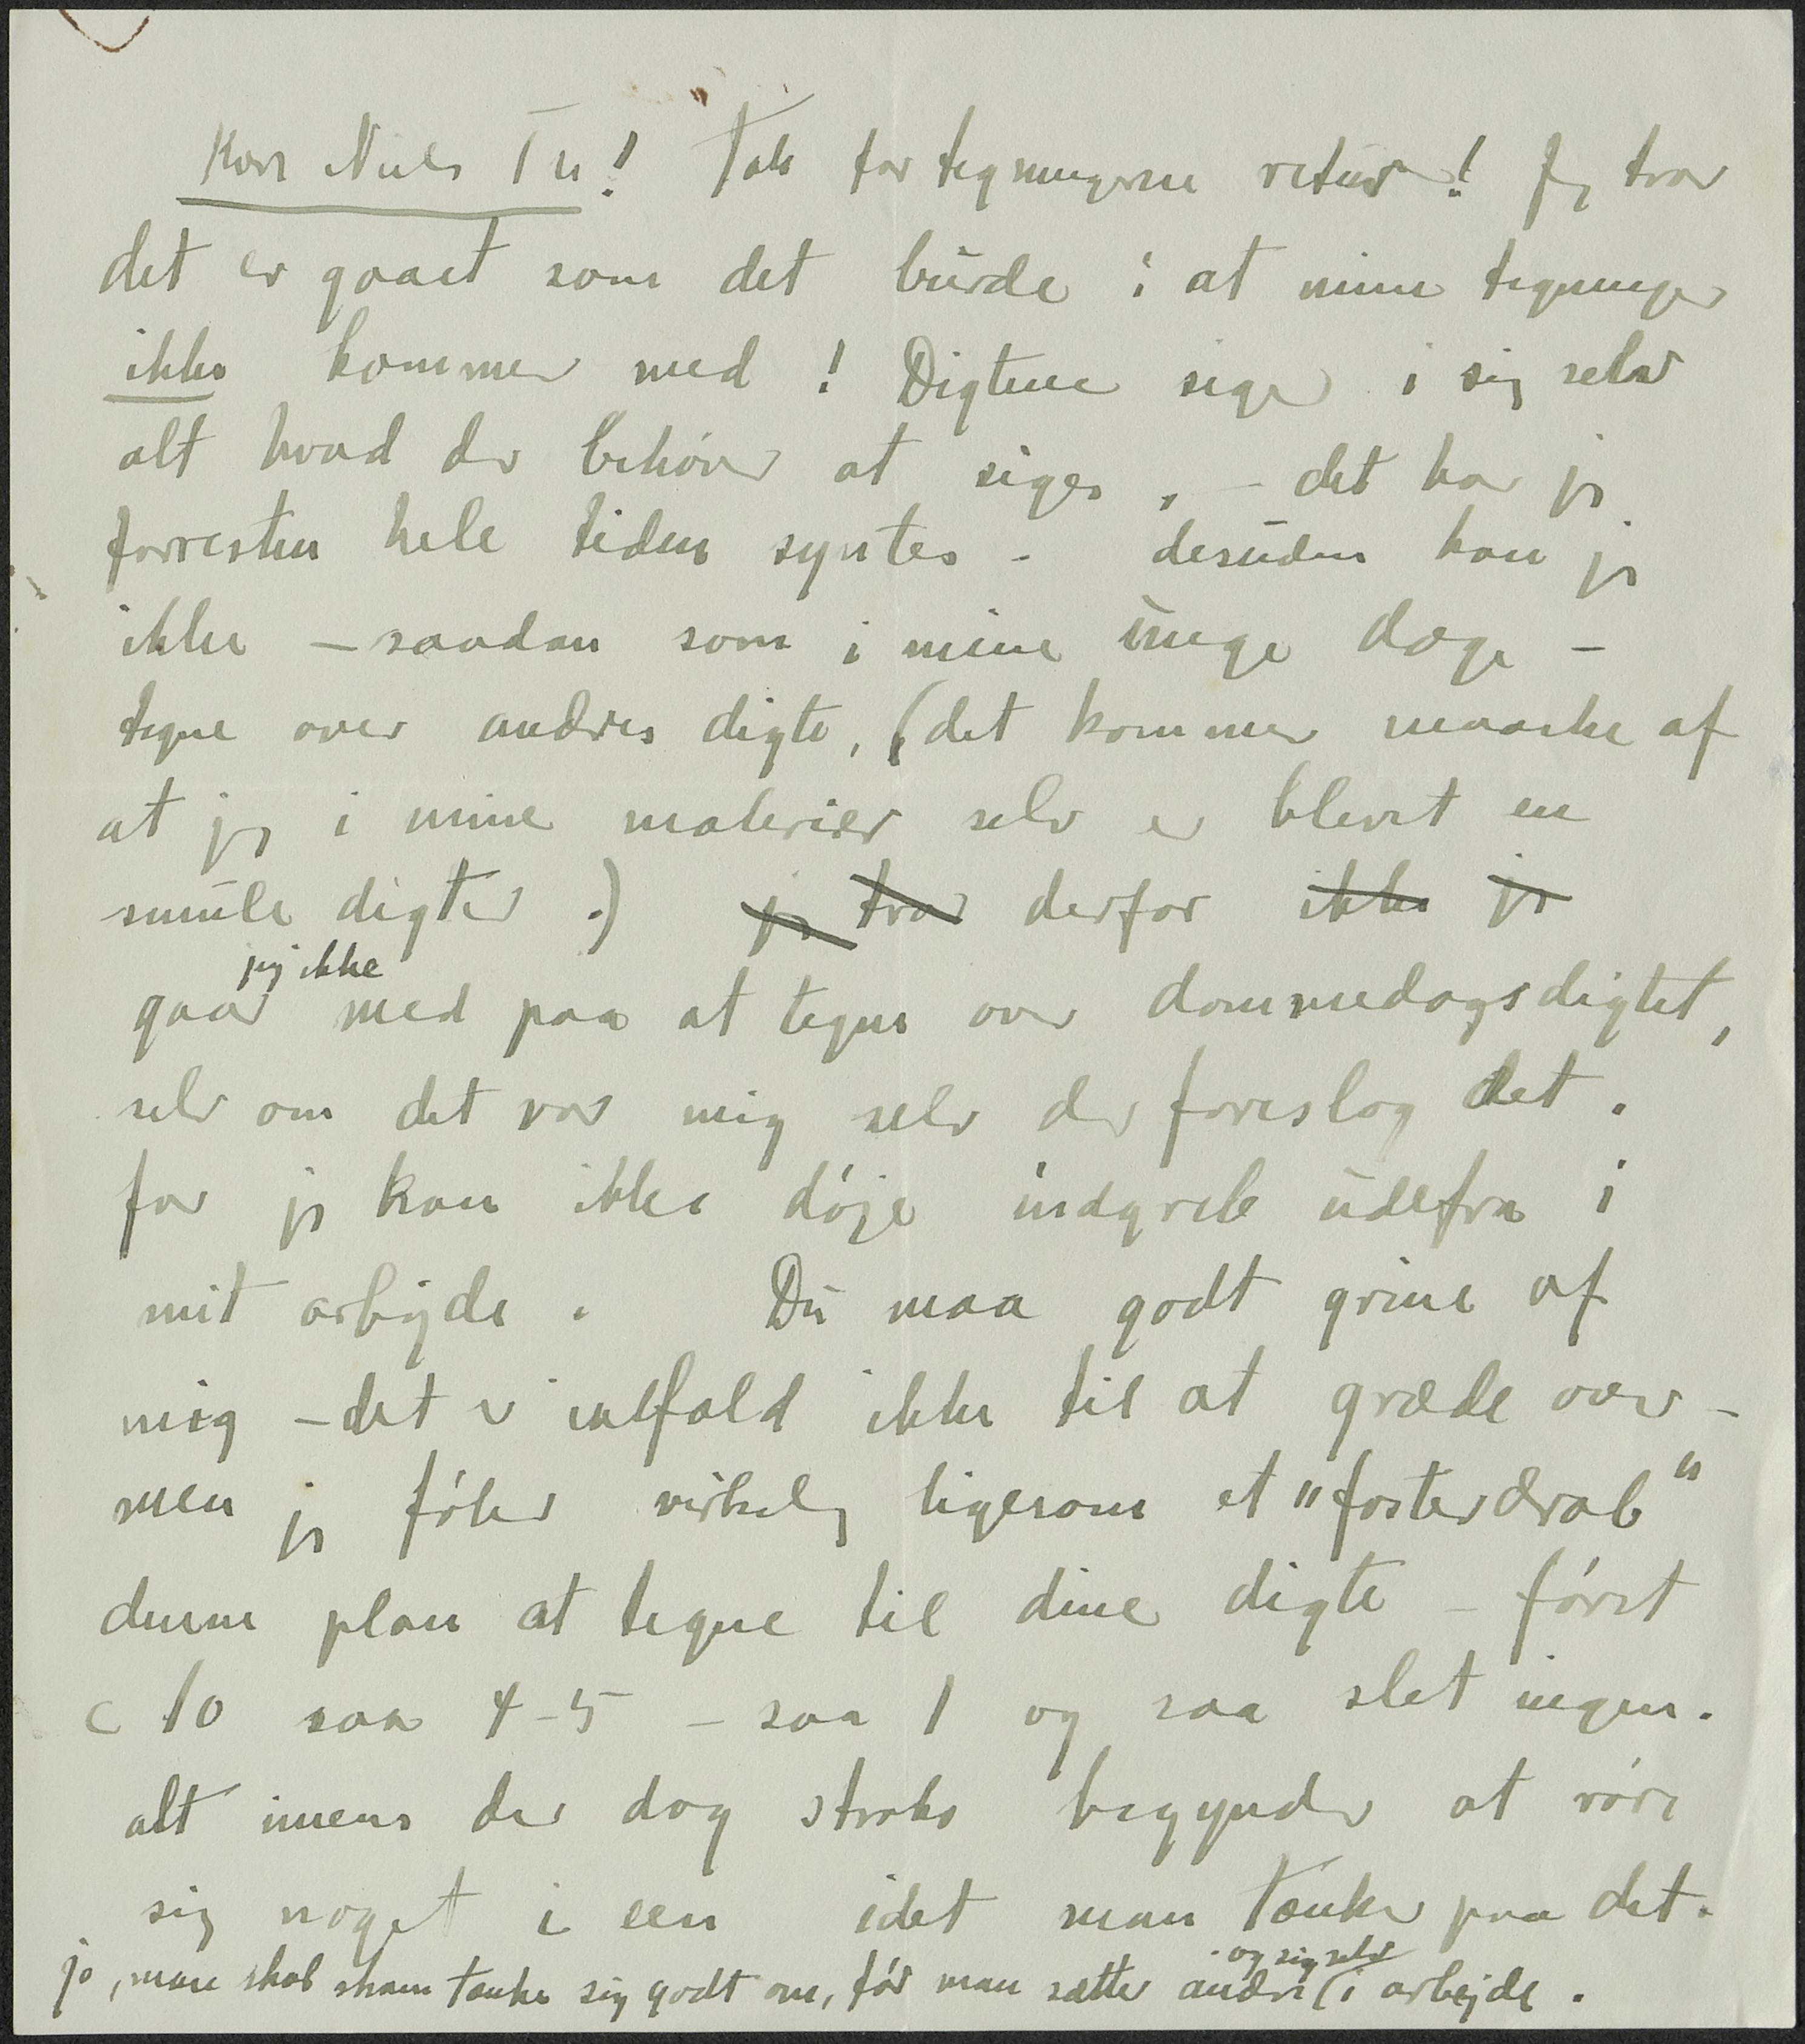 Kære Niels Th! Tak for tegningerne retur! Jeg tror
det er gaaet som det burde i at mine tegninger
ikke kommer med! Digtene siger i sig selv
alt hvad der behøver at siges, – det har jeg
forresten hele tiden syntes – desuden kan jeg
ikke – saadan som i mine unge dage –
tegne over andres digte, (det kommer maaske af
at jeg i mine materier selv er blevet en
smule digter.) jeg tror derfor ikke jeg
jeg ikke
gaar med paa at tegne over dommedagsdigtet,
selv om det var mig selv der foreslog det.
for jeg kan ikke døje indgreb udefra i
mit arbejde. Du maa godt grine af
mig – det er ialfald ikke til at græde over –
men jeg føler virkelig ligesom et "fosterdrab"
denne plan at tegne til dine digte – først
c 10 saa 4-5 – saa 1 og saa slet ingen.
alt imens der dog straks begynder at røre
sig noget i een idet man tænker paa det.
og sig selv
jo, man skal skam tænke sig godt om, før man sætter andre (i arbejde.